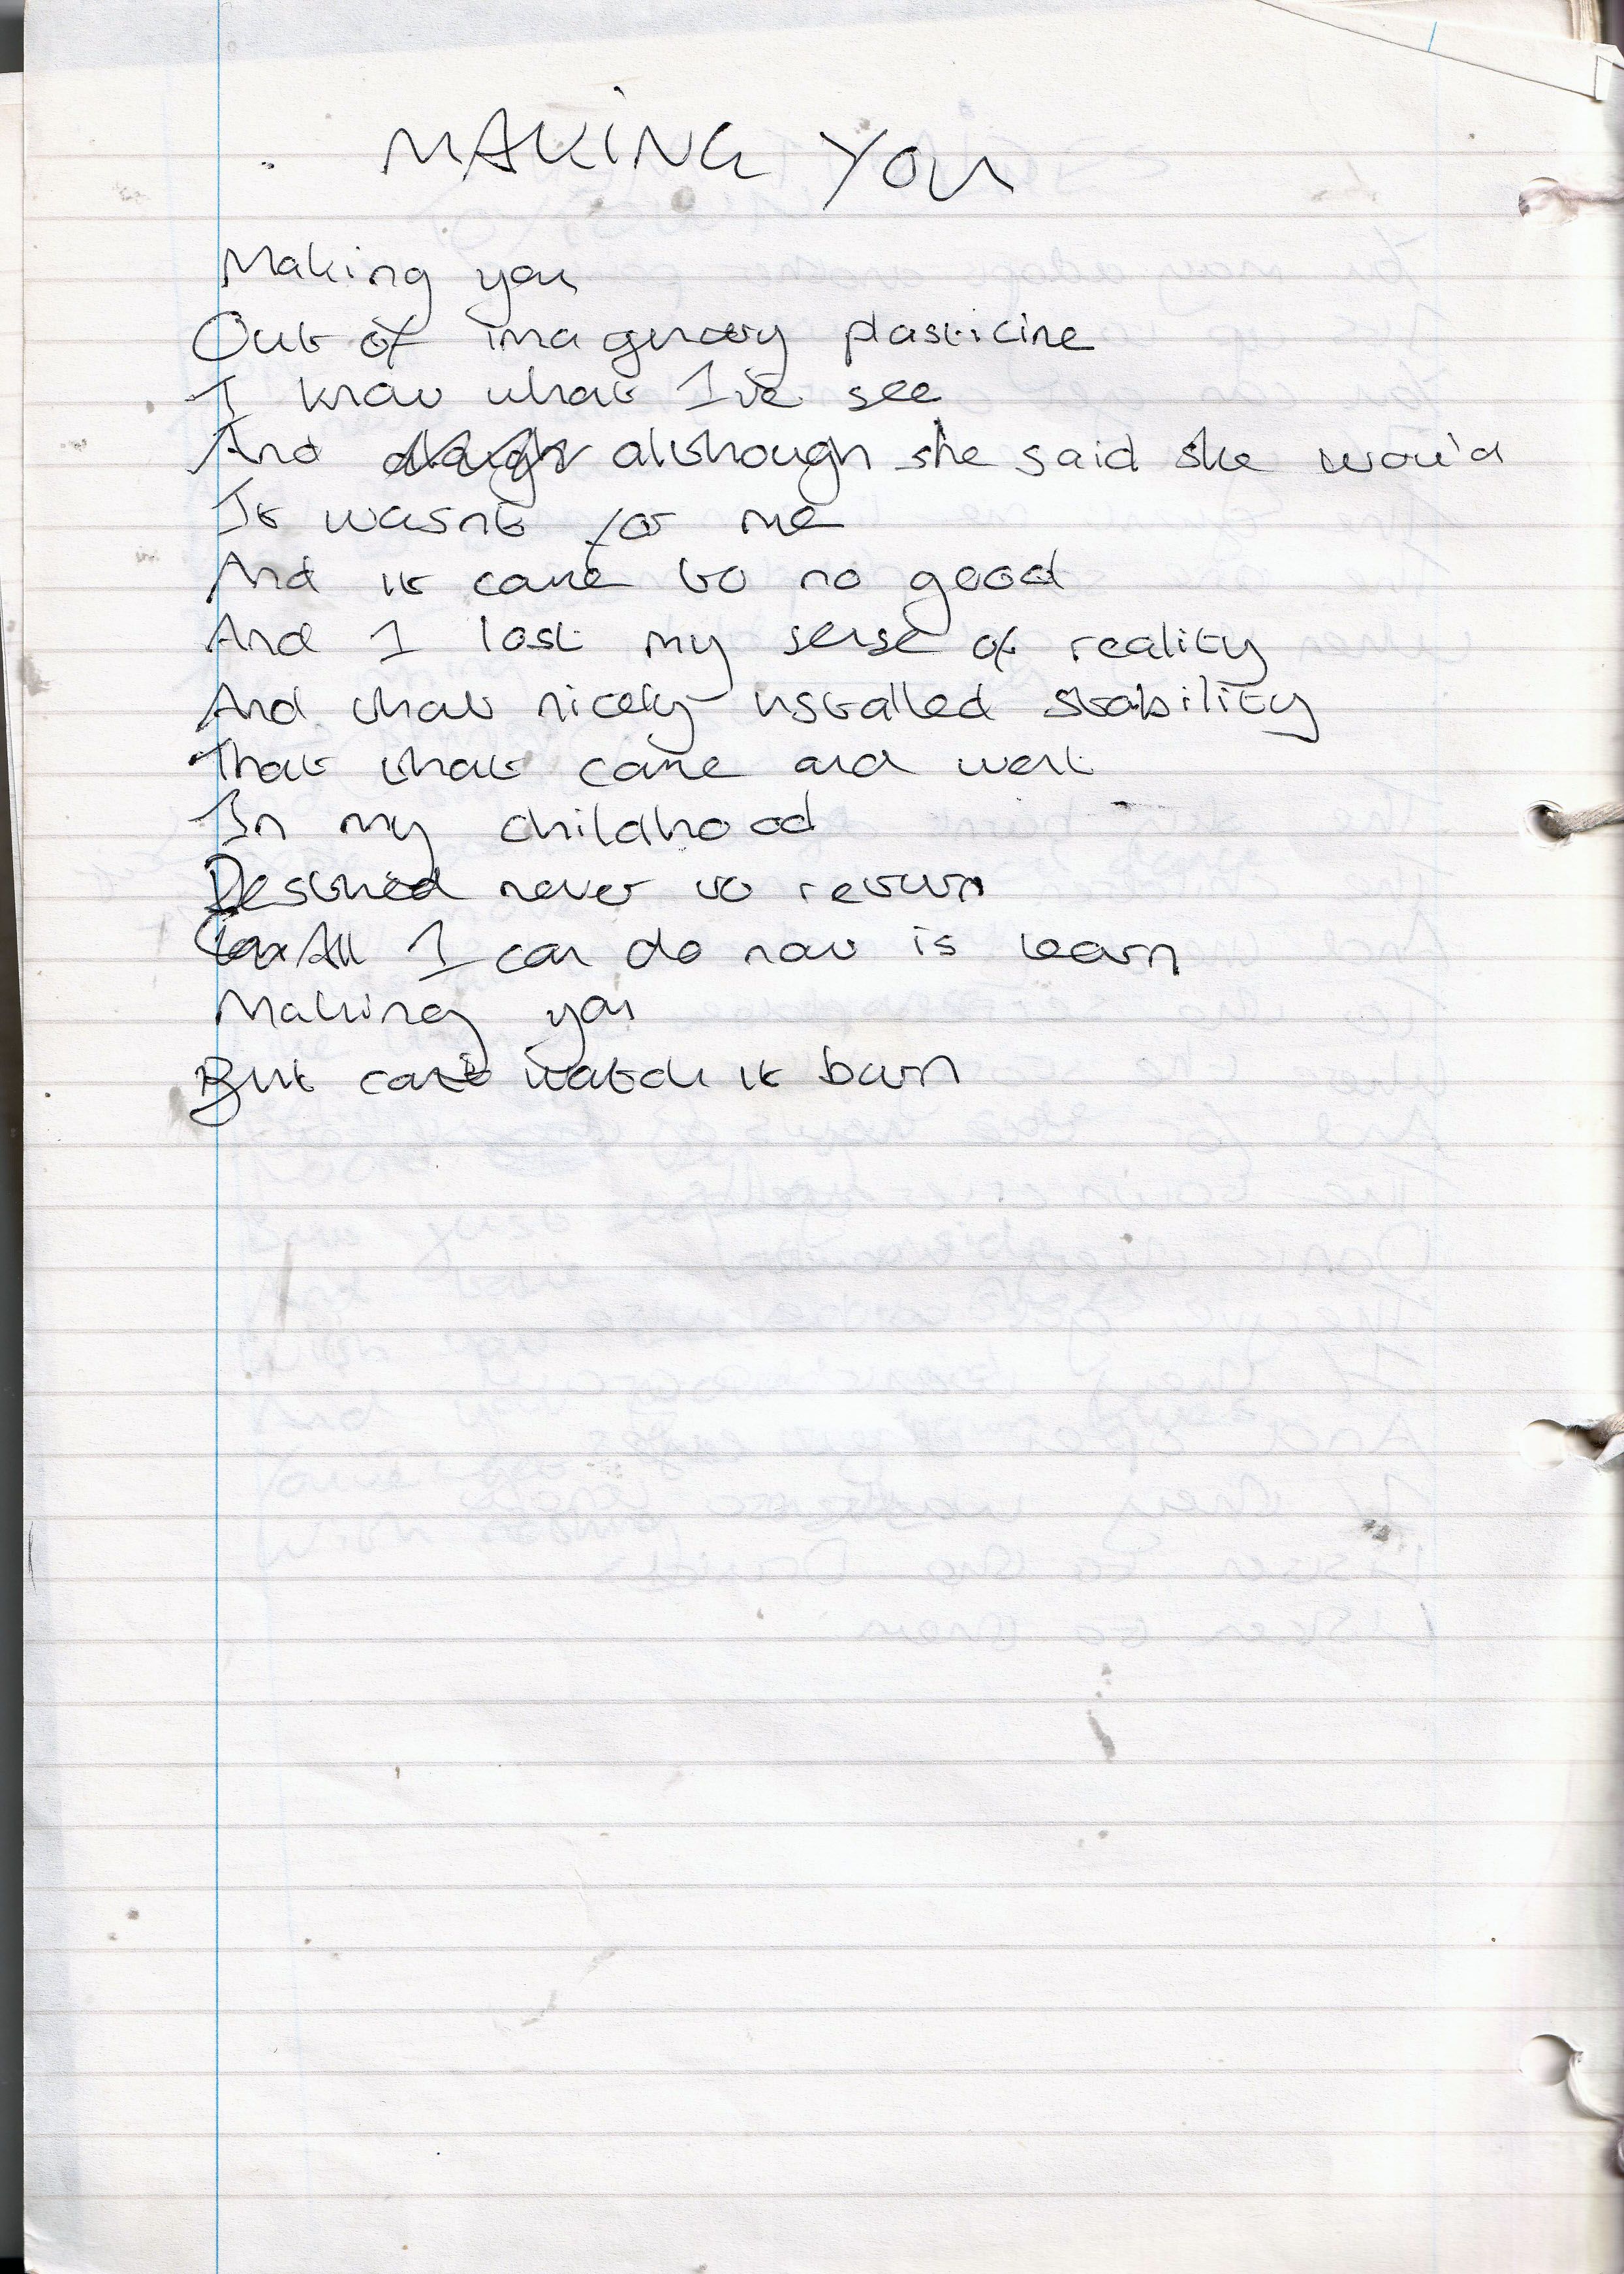 MAKING YOU
Making you
Out of imaginary plasticine
I know what I've see
And although she said she would
It wasnt for me
And it came to no good
And I lost my sense of reality
And that nicely installed stability
That that came and went
In my childhood
Destined never to return
All I can do now is learn
Making you
But cant watch it burn